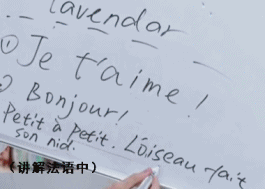 lavendar
① Je t'aime!
② Bonjour!
Petit à petit. L'oiseau fait
son nid.
（讲解法语中）